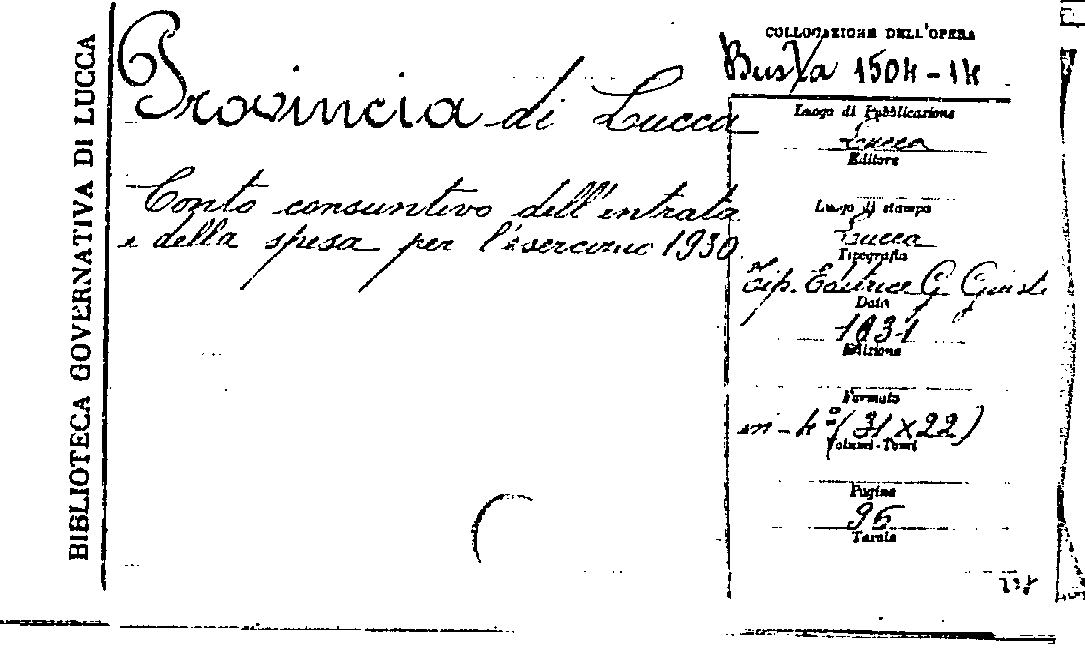 BIBLIOTECA GOVERNATIVA DI LUCCA
Provincia di Lucca
Conto consuntivo dell'entrata
e della spesa per l'esercizio 1930
COLLOCAZIONE DELL'OPERA
Busta 1504-14
Luogo di Pubblicazione
Lucca
Editore
Luogo di stampa
Lucca
Tipografia
Tip. Editrice G. Giusti
Data
1931
Edizione
Formato
in-4º (31 x 22)
Volumi-Tomi
Pagine
95
Tavole